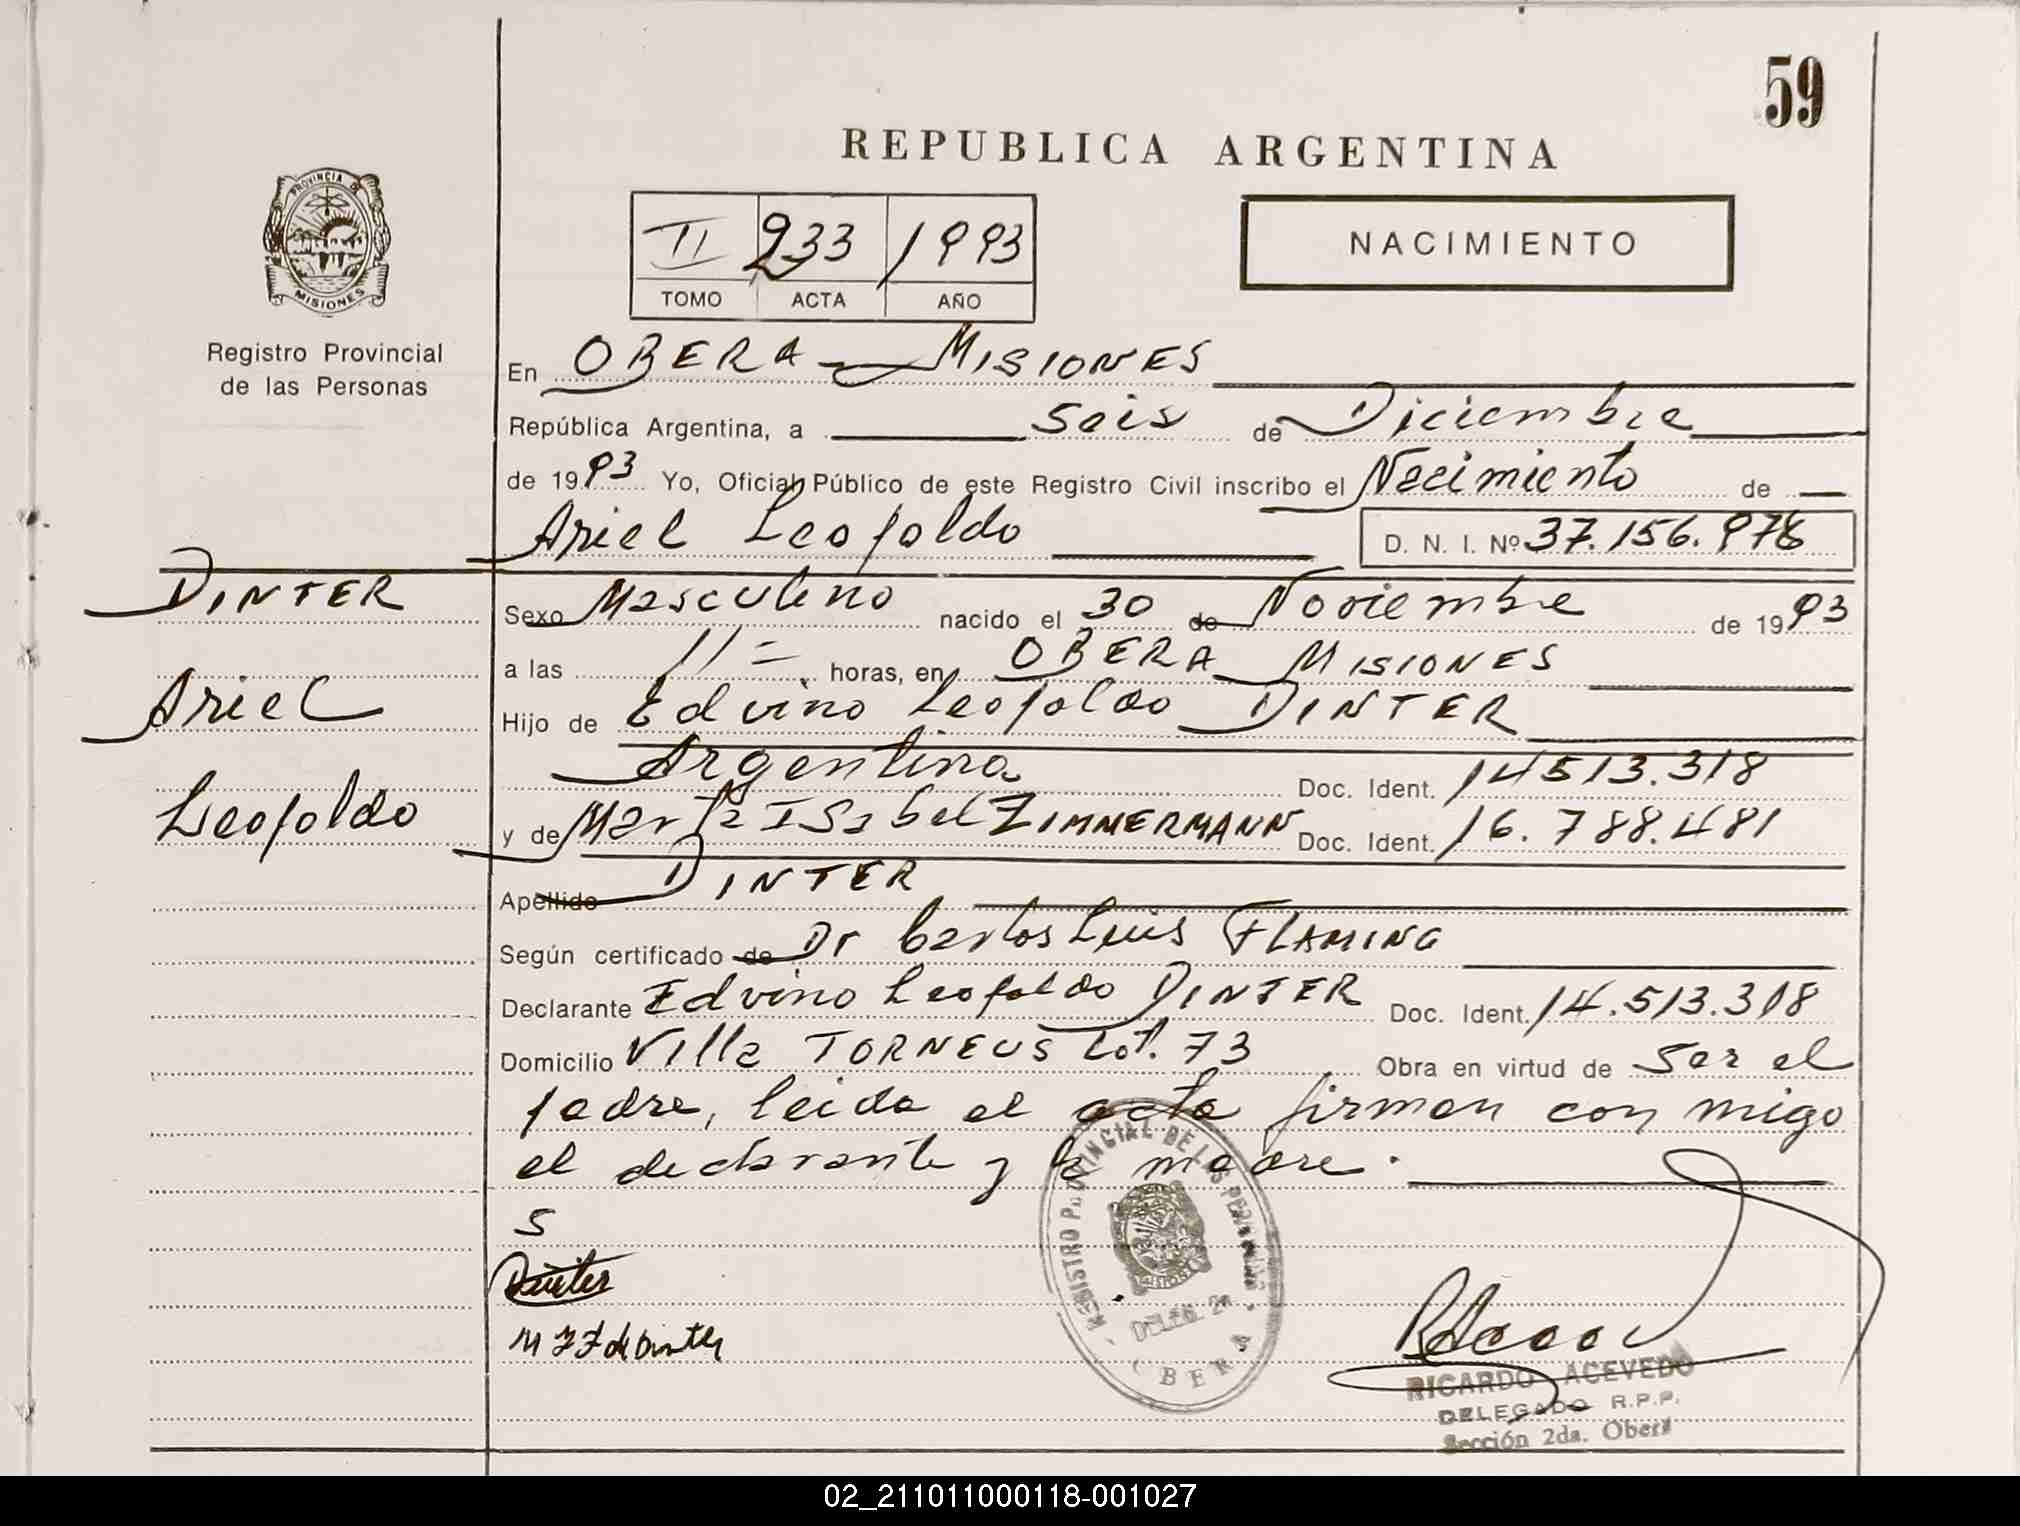 59
REPUBLICA ARGENTINA
PROVINCIA DE
MISIONES
II 233 1993
TOMO ACTA AÑO
NACIMIENTO
Registro Provincial
de las Personas
En OBERA - MISIONES
República Argentina, a seis de Diciembre
de 1993 Yo, Oficial Público de este Registro Civil inscribo el Nacimiento de
Ariel Leopoldo D. N. I. Nº 37.156.978
DINTER
Ariel
Leopoldo
Sexo Masculino nacido el 30 de Noviembre de 1993
a las 11 = horas, en OBERA MISIONES
Hijo de Edvino Leopoldo DINTER
Argentina Doc. Ident. 14513.318
y de Marta ISabel ZIMMERMANN Doc. Ident. 16.788.481
Apellido DINTER
Según certificado de Dr Carlos Luis FLAMING
Declarante Edvino Leopoldo DINTER Doc. Ident. 14.513.318
Domicilio Villa TORNEUS Lot. 73 Obra en virtud de ser el
padre, leida el acta firman con migo
el declarante y la madre.
S
Dinter
M I Z de Dinter
REGISTRO PROVINCIAL DE LAS PERSONAS
MISIONES
DELEG. 2a
OBERA
RICARDO ACEVEDO
DELEGADO R.P.P.
Sección 2da. Oberá
02_211011000118-001027